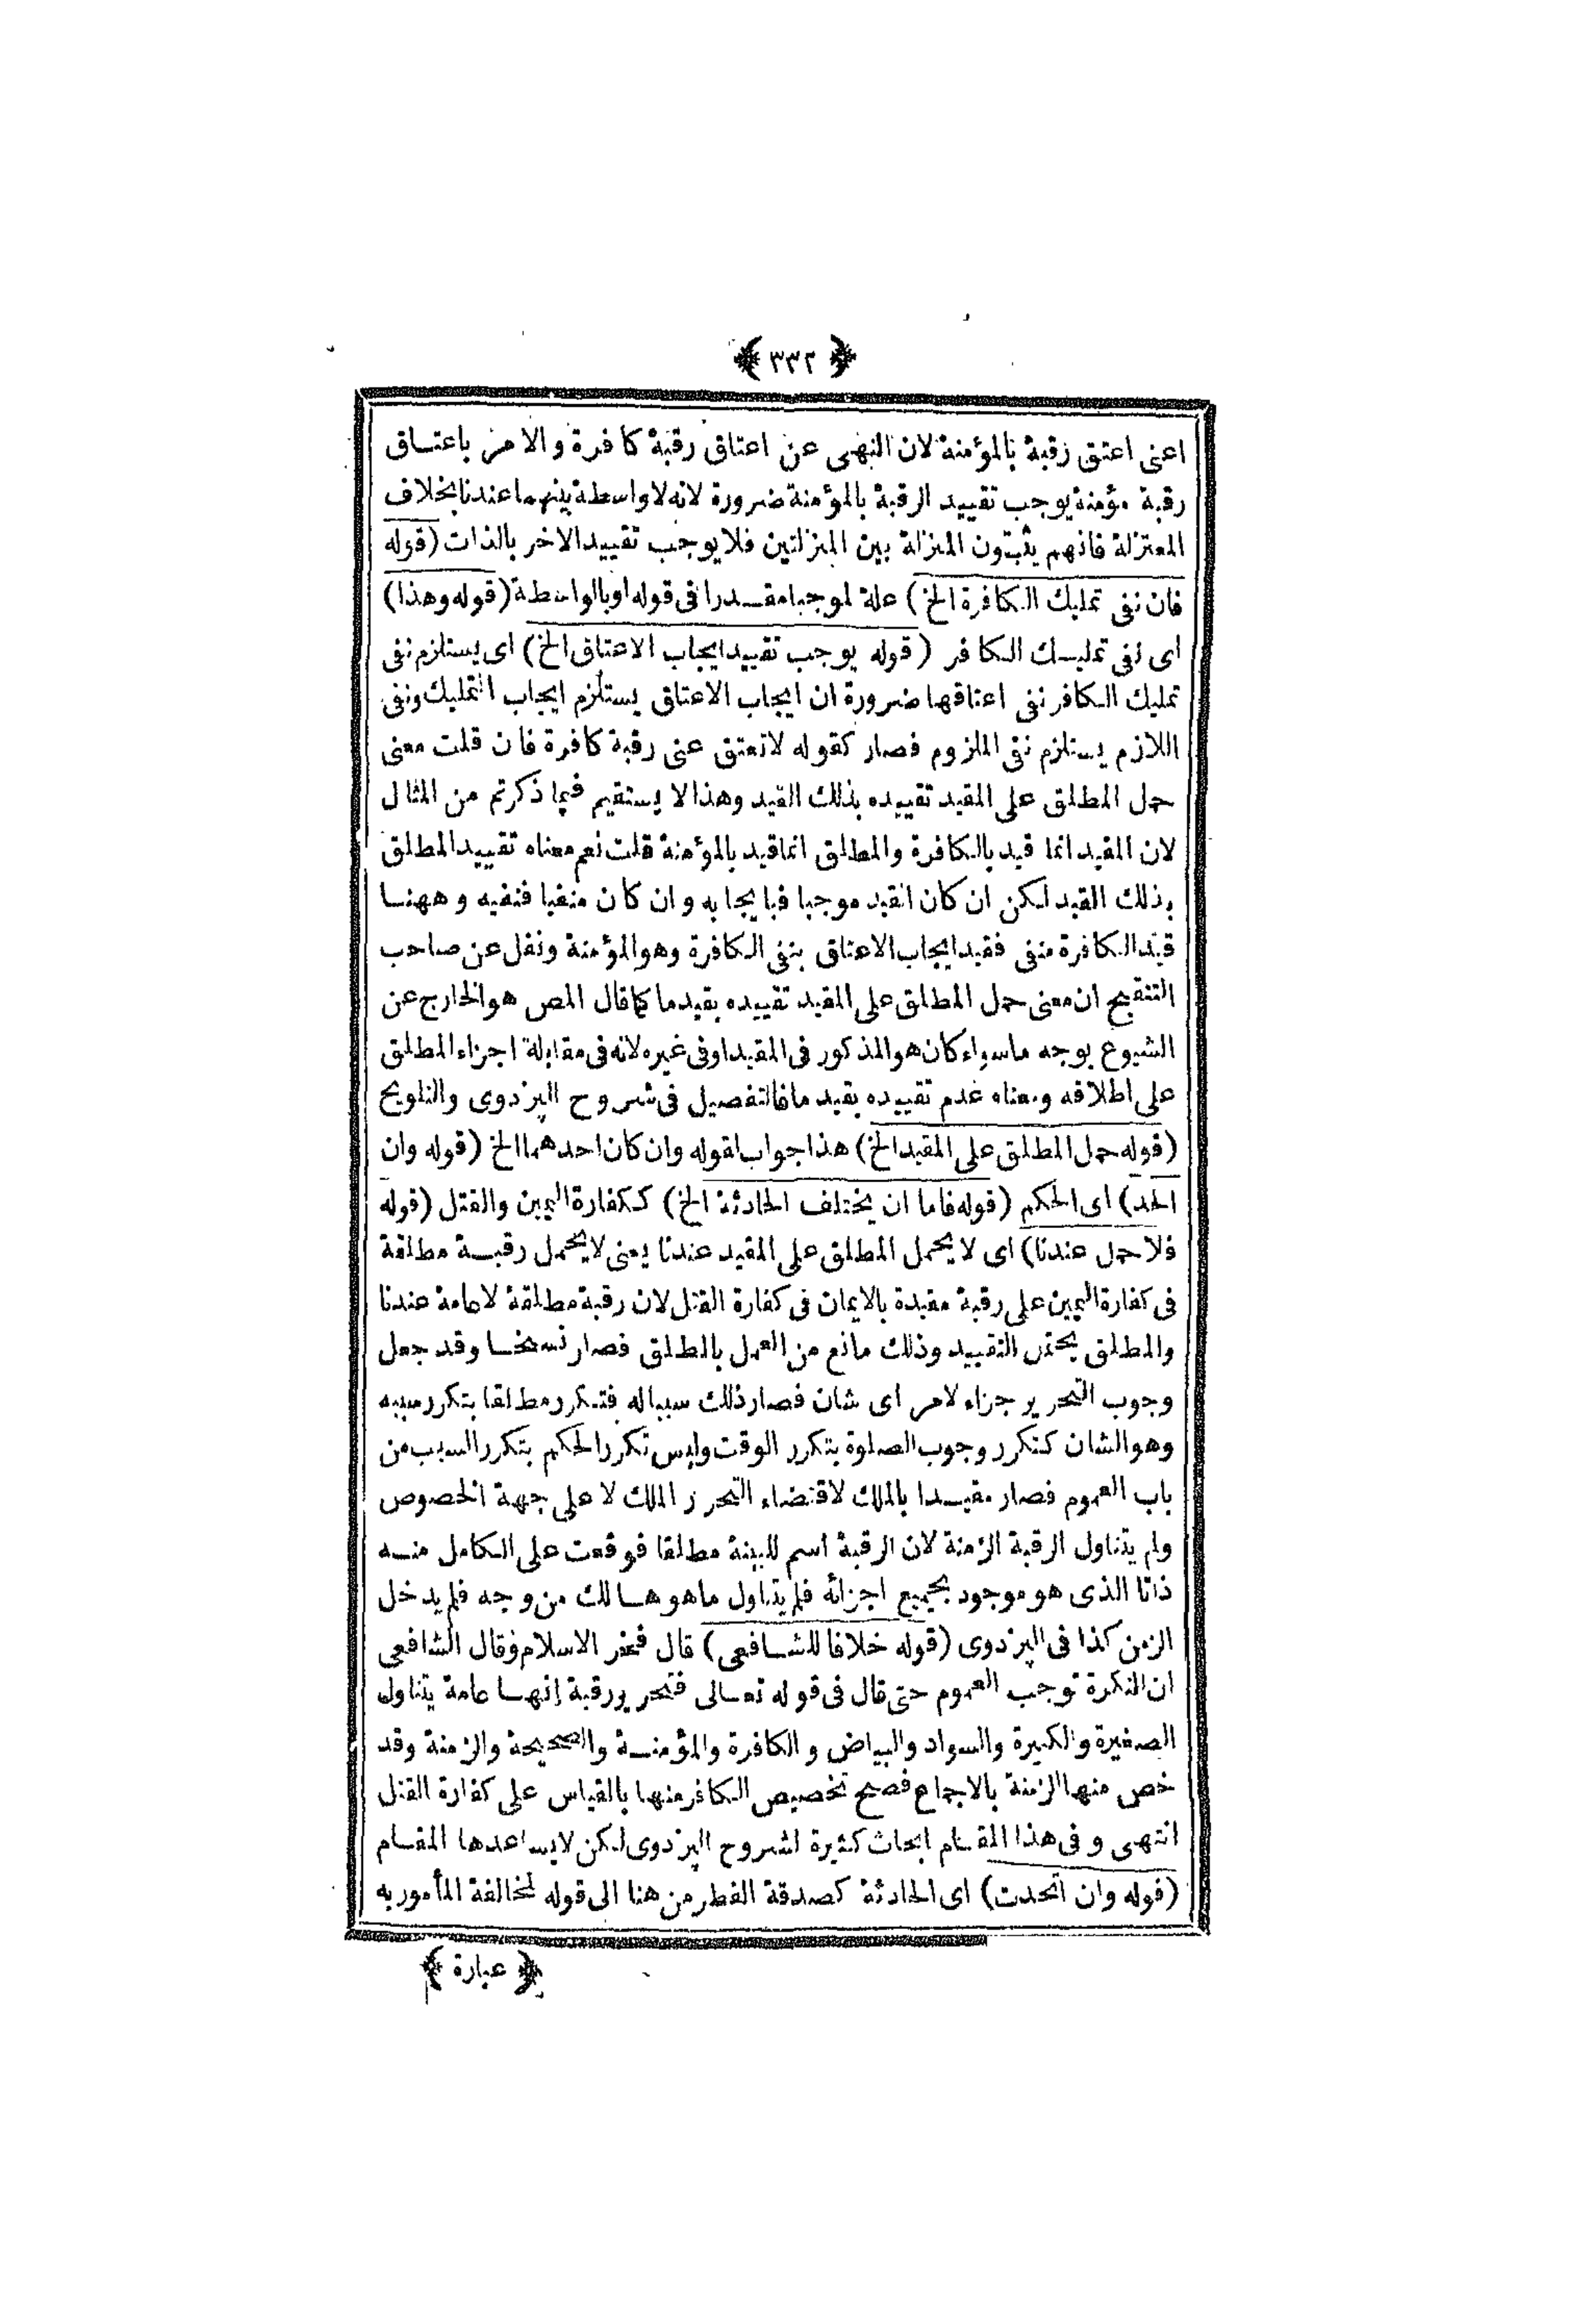 ﴿ ٣٣٢ ﴾
اعنى اعتق رقبة بالمؤمنة لان النهى عن اعتاق رقبة كافرة والامر باعتاق
رقبة مؤمنة يوجب تقييد الرقبة بالمؤمنة ضرورة لانه لا واسطة بينهما عندنا بخلاف
المعتزلة فانهم يثبتون المنزلة بين المنزلتين فلا يوجب تقييد الاخر بالذات (قوله
فان نفى تمليك الكافرة الخ) علة لموجبا مقدرا فى قوله او بالواسطة (قوله وهذا)
اى نفى تمليك الكافر (قوله يوجب تقييد ايجاب الاعتاق الخ) اى يستلزم نفى
تمليك الكافر نفى اعتاقها ضرورة ان ايجاب الاعتاق يستلزم ايجاب التمليك ونفى
اللازم يستلزم نفى الملزوم فصار كقوله لا تعتق عنى رقبة كافرة فان قلت معنى
حمل المطلق على المقيد تقييده بذلك القيد وهذا لا يستقيم فيما ذكرتم من المثال
لان المقيد انما قيد بالكافرة والمطلق انما قيد بالمؤمنة قلت نعم معناه تقييد المطلق
بذلك القيد لكن ان كان القيد موجبا فبايجابه وان كان منفيا فنفيه وههنا
قيد الكافرة منفى فقيد ايجاب الاعتاق بنفى الكافرة وهو المؤمنة ونقل عن صاحب
التنقيح ان معنى حمل المطلق على المقيد تقييده بقيد ما كما قال المص هو الخارج عن
الشيوع بوجه ما سواء كان هو المذكور فى المقيد او فى غيره لانه فى مقابلة اجزاء المطلق
على اطلاقه ومعناه عدم تقييده بقيد ما فالتفصيل فى شروح البزدوى والتلويح
(قوله حمل المطلق على المقيد الخ) هذا جواب لقوله وان كان احدهما الخ (قوله وان
اتحد) اى الحكم (قوله فاما ان يختلف الحادثة الخ) ككفارة اليمين والقتل (قوله
فلا حمل عندنا) اى لا يحمل المطلق على المقيد عندنا يعنى لا يحمل رقبة مطلقة
فى كفارة اليمين على رقبة مقيدة بالايمان فى كفارة القتل لان رقبة مطلقة لا عامة عندنا
والمطلق يحتمل التقييد وذلك مانع من العمل بالمطلق فصار نسخا وقد جعل
وجوب التحرير جزاء لامر اى شان فصار ذلك سببا له فتكرر مطلقا بتكرر سببه
وهو الشان كتكرر وجوب الصلوة بتكرر الوقت وليس تكرر الحكم بتكرر السبب من
باب العموم فصار مقيدا بالملك لاقتضاء التحرر الملك لا على جهة الخصوص
ولم يتناول الرقبة الزمنة لان الرقبة اسم للبينة مطلقا فوقعت على الكامل منه
ذاتا الذى هو موجود بجميع اجزائه فلم يتناول ما هو هالك من وجه فلم يدخل
الزمن كذا فى البزدوى (قوله خلافا للشافعى) قال فخر الاسلام وقال الشافعى
ان النكرة توجب العموم حتى قال فى قوله تعالى فتحرير رقبة انها عامة يتناول
الصغيرة والكبيرة والسواد والبياض والكافرة والمؤمنة والصحيحة والزمنة وقد
خص منها الزمنة بالاجماع فصح تخصيص الكافر منها بالقياس على كفارة القتل
انتهى وفى هذا المقام ابحاث كثيرة لشروح البزدوى لكن لا يساعدها المقام
(قوله وان اتحدت) اى الحادثة كصدقة الفطر من هنا الى قوله لمخالفة المأمور به
﴿ عبارة ﴾